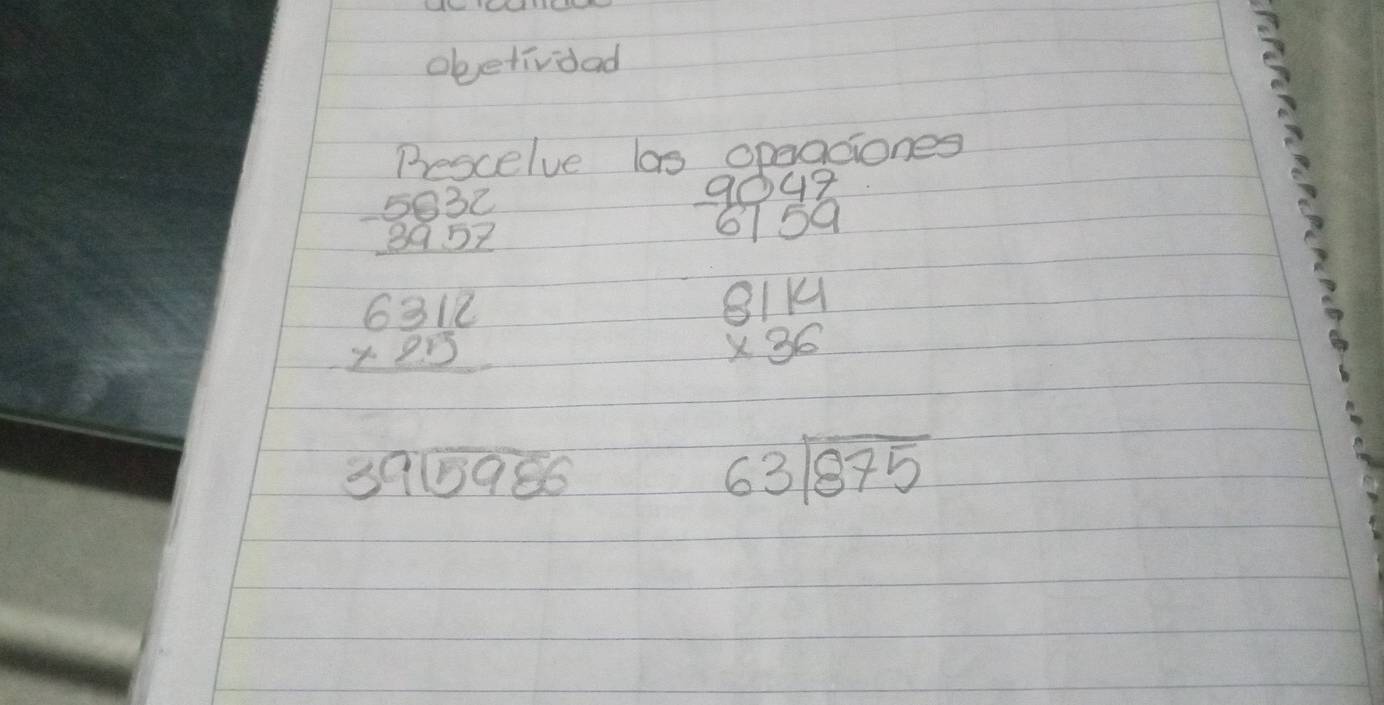 objetividad
Rescelve las operaciones
-5032 -9047
3957 6159
6312 8114
x 25 x 36
39⟌5986 63⟌875